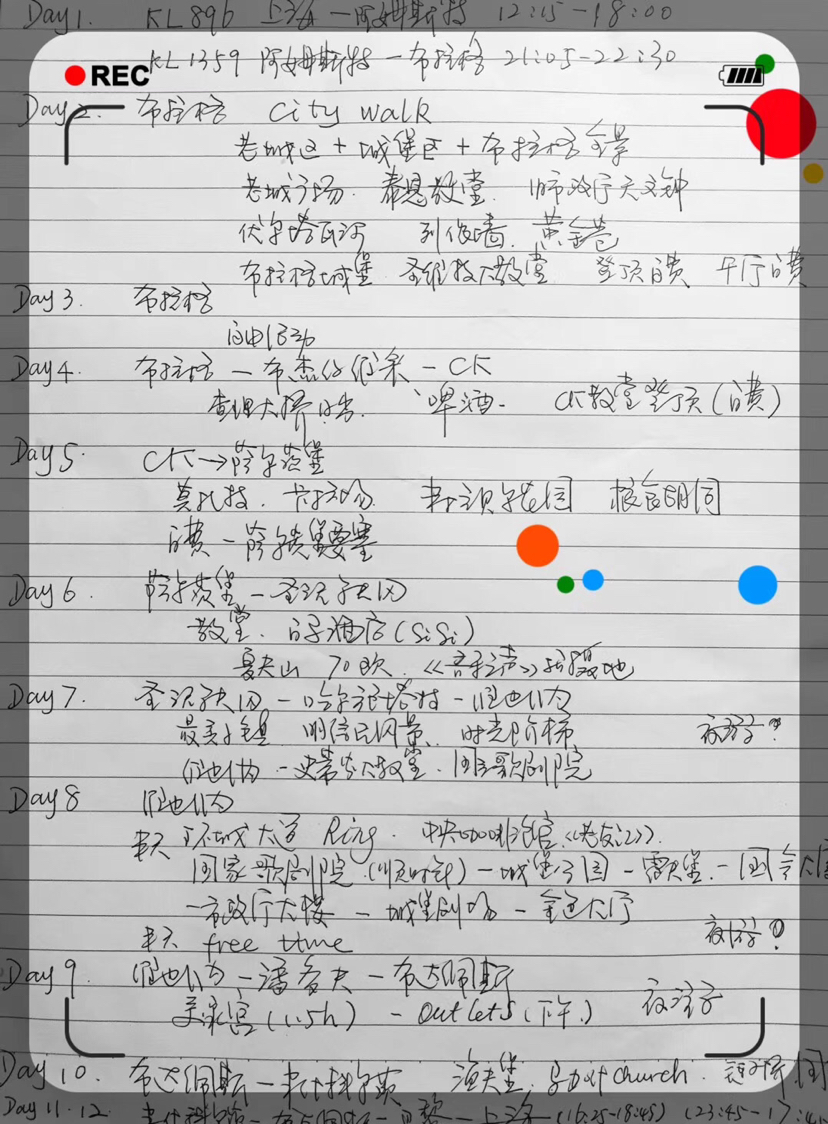 Day1. KL896 上海—阿姆斯特 12:15-18:00
REC
KL1359 阿姆斯特—布拉格 21:05-22:30
Day 2. 布拉格 City walk
老城区+城堡区+布拉格全景
老城广场. 泰恩教堂. 旧市政厅天文钟
伏尔塔瓦河 列侬墙. 黄金巷
布拉格城堡. 圣维特大教堂 登顶自费 午厅自费
Day 3. 布拉格
自由活动
Day4. 布拉格—布杰约维采—CK
查理大桥日出. 啤酒. CK教堂登顶(自费)
Day 5. CK→萨尔茨堡
莫扎特. 卡拉扬. 米拉贝尔花园 粮食胡同
自费—萨尔茨堡要塞
Day 6. 萨尔茨堡—圣沃夫冈
教堂. 白马酒店(SiSi)
夏夫山 70欧. 《音乐之声》拍摄地
Day 7. 圣沃夫冈—哈尔施塔特—维也纳
最美小镇 明信片风景. 时光阶梯 夜游?
维也纳—史蒂芬大教堂. 国家歌剧院
Day 8 维也纳
半天 环城大道 Ring. 中央咖啡馆
国家歌剧院(顺时针)—城堡公园—霍夫堡—国会大厦
—市政厅大楼—城堡剧场—金色大厅
半天 free time 夜游?
Day 9. 维也纳—潘多夫—布达佩斯
美泉宫(1.5h) — Outlets(下午.) 夜游
Day 10. 布达佩斯 渔夫堡. church.
Day 11.12. 上海(16:25-18:45) (23:45-17: